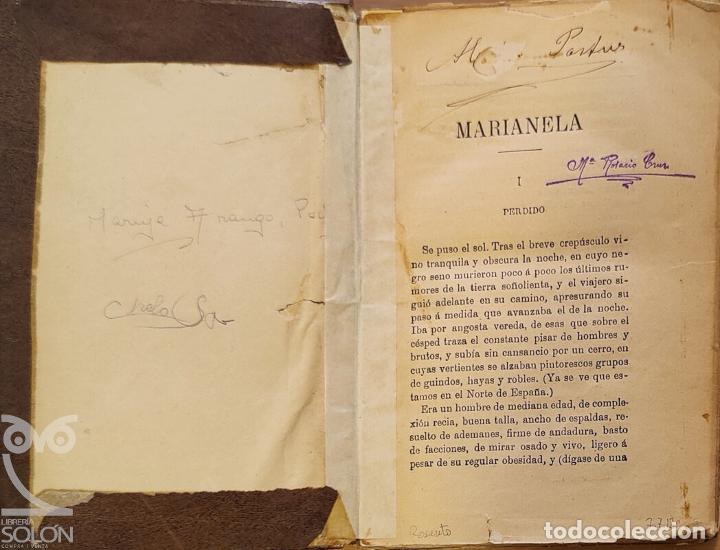 Maruja Arango,
MARIANELA
I
Mª Rosario Cruz
PERDIDO
Se puso el sol. Tras el breve crepúsculo vi-
no tranquila y obscura la noche, en cuyo ne-
gro seno murieron poco á poco los últimos ru-
mores de la tierra soñolienta, y el viajero si-
guió adelante en su camino, apresurando su
paso á medida que avanzaba el de la noche.
Iba por angosta vereda, de esas que sobre el
césped traza el constante pisar de hombres y
brutos, y subía sin cansancio por un cerro, en
cuyas vertientes se alzaban pintorescos grupos
de guindos, hayas y robles. (Ya se ve que es-
tamos en el Norte de España.)
Era un hombre de mediana edad, de comple-
xión recia, buena talla, ancho de espaldas, re-
suelto de ademanes, firme de andadura, basto
de facciones, de mirar osado y vivo, ligero á
pesar de su regular obesidad, y (dígase de una
LIBRERÍA
SOLÓN
COMPRA Y VENTA
todocoleccion.net